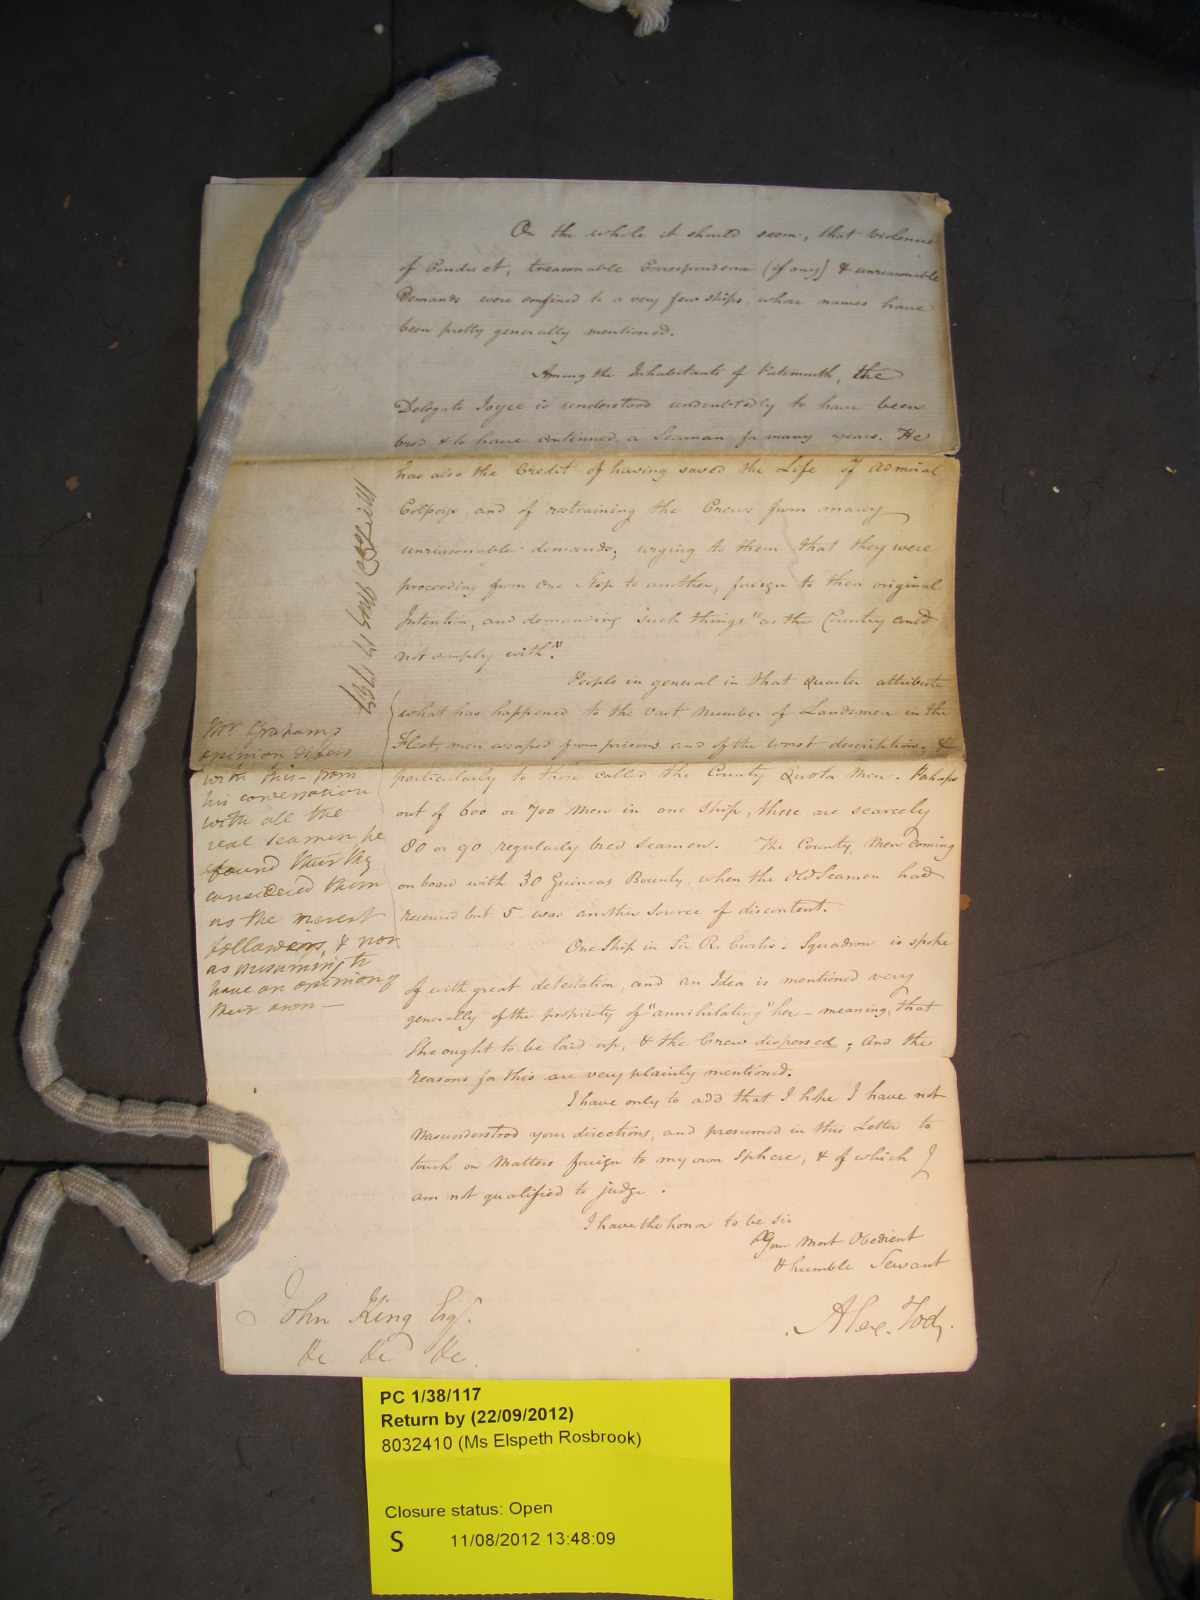 On the whole it should seem, that violence
of Conduct, treasonable Correspondence (if any) & unreasonable
Demands were confined to a very few ships, whose names have
been pretty generally mentioned.
Among the Inhabitants of Portsmouth, the
Delegate Joyce is understood undoubtedly to have been
bred & to have continued a Seaman for many years. He
has also the Credit of having saved the Life of Admiral
Colpoys, and of restraining the Crews from many
unreasonable demands; urging to them that they were
proceeding from One Step to another, foreign to their original
Intention, and demanding such things "as the Country could
not comply with".
People in general in that Quarter attribute
what has happened to the vast Number of Landsmen in the
Fleet, men escaped from prisons and of the worst description, &
particularly to those called the County Quota Men. Perhaps
out of 600 or 700 Men in one Ship, there are scarcely
80 or 90 regularly bred Seamen. The County Men coming
on board with 30 Guineas Bounty, when the Old Seamen had
received but 5 was another Source of discontent.
One Ship in Sir R. Curtis's Squadron is spoke
of with great detestation, and an Idea is mentioned very
generally of the propriety of "annihilating" her - meaning, that
She ought to be laid up, & the Crew dispersed; and the
reasons for this are very plainly mentioned.
I have only to add that I hope I have not
Misunderstood your directions, and presumed in this Letter to
touch on Matters foreign to my own Sphere, & of which I
am not qualified to judge.
I have the honor to be Sir
Your Most Obedient
& humble Servant
Alex. Tod.
John King Esqr.
&c &c &c.
Mr Graham's
opinion differs
with this - from
his conversation
with all the
real seamen he
found that they
considered them
as the merest
followers, & not
as presuming to
have an opinion of
their own -
PC 1/38/117
Return by (22/09/2012)
8032410 (Ms Elspeth Rosbrook)
Closure status: Open
S 11/08/2012 13:48:09